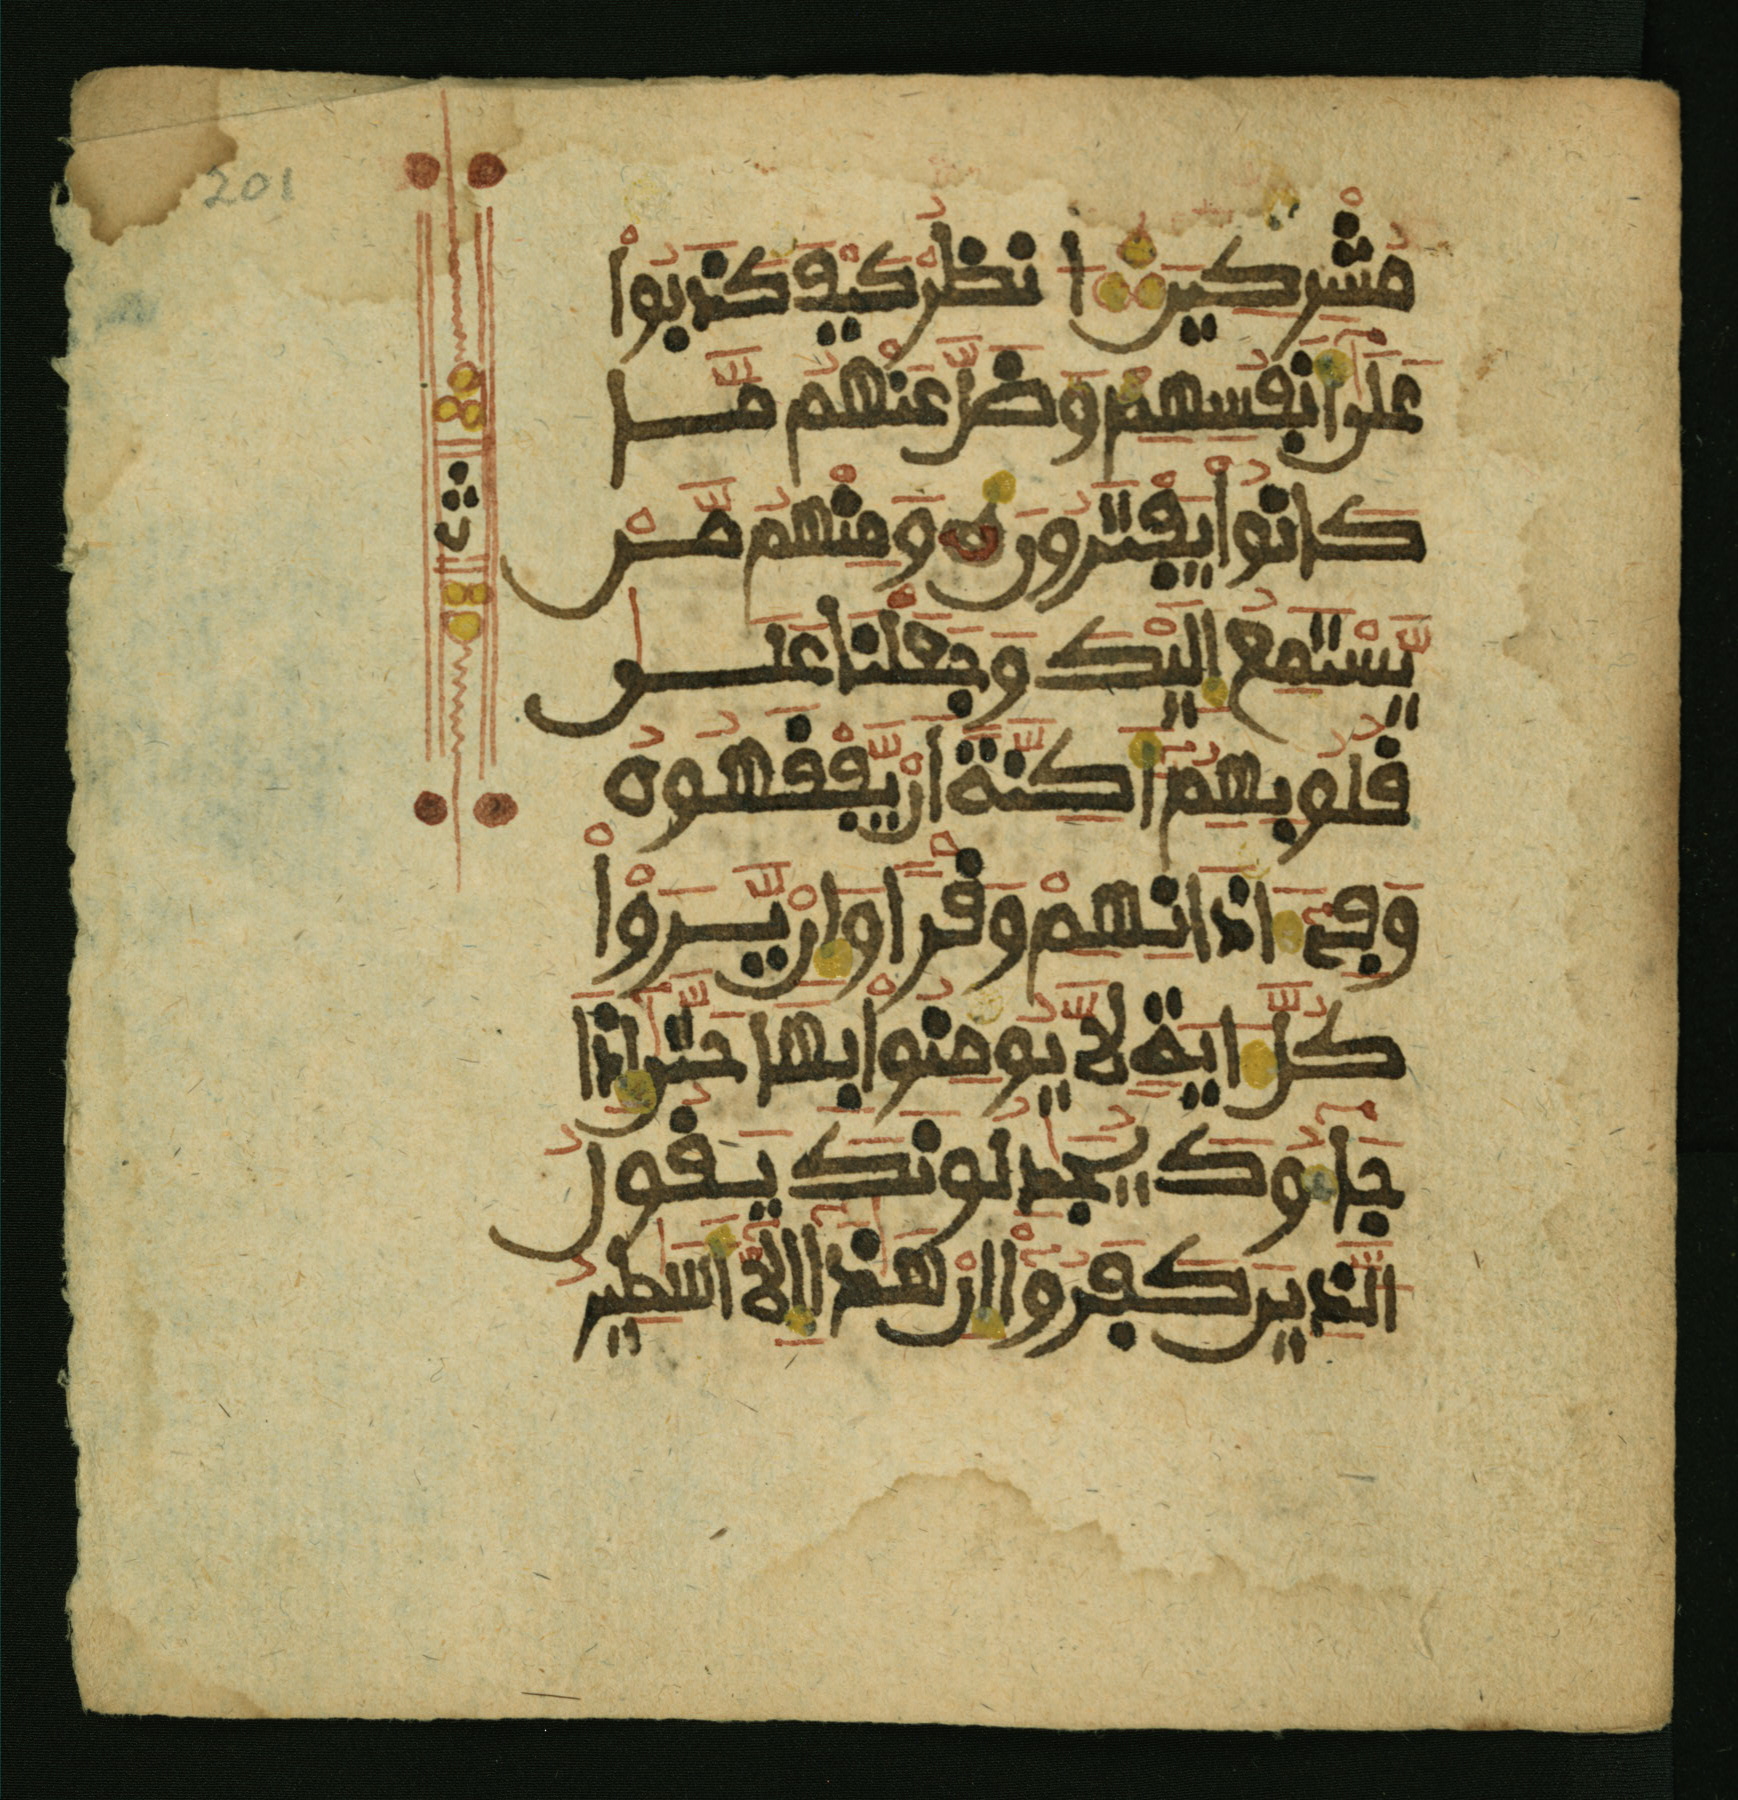 201
مُشْرِكِينَ اَ نظُرْ كَيْفَ كَذَبُواْ
عَلَىٰٓ أَنفُسِهِمْ وَضَلَّ عَنْهُم مَّا
كَانُواْ يَفْتَرُونَ وَمِنْهُم مَّنْ
يَّسْتَمِعُ إِلَيْكَ وَجَعَلْنَا عَلَىٰ
قُلُوبِهِمُۥٓ أَكِنَّةً أَنْ يَّفْقَهُوهُ
وَفِىٓ ءَاذَانِهِمْ وَقْراً وَإِنْ يَّرَوْاْ
كُلَّ ءَايَةٍ لَّا يُومِنُواْ بِهَا حَتَّىٰٓ إِذَا
جَآءُوكَ يُجَٰدِلُونَكَ يَقُولُ
الَّذِينَ كَفَرُوٓاْ إِنْ هَٰذَآ إِلَّآ أَسَٰطِيرُ
ث